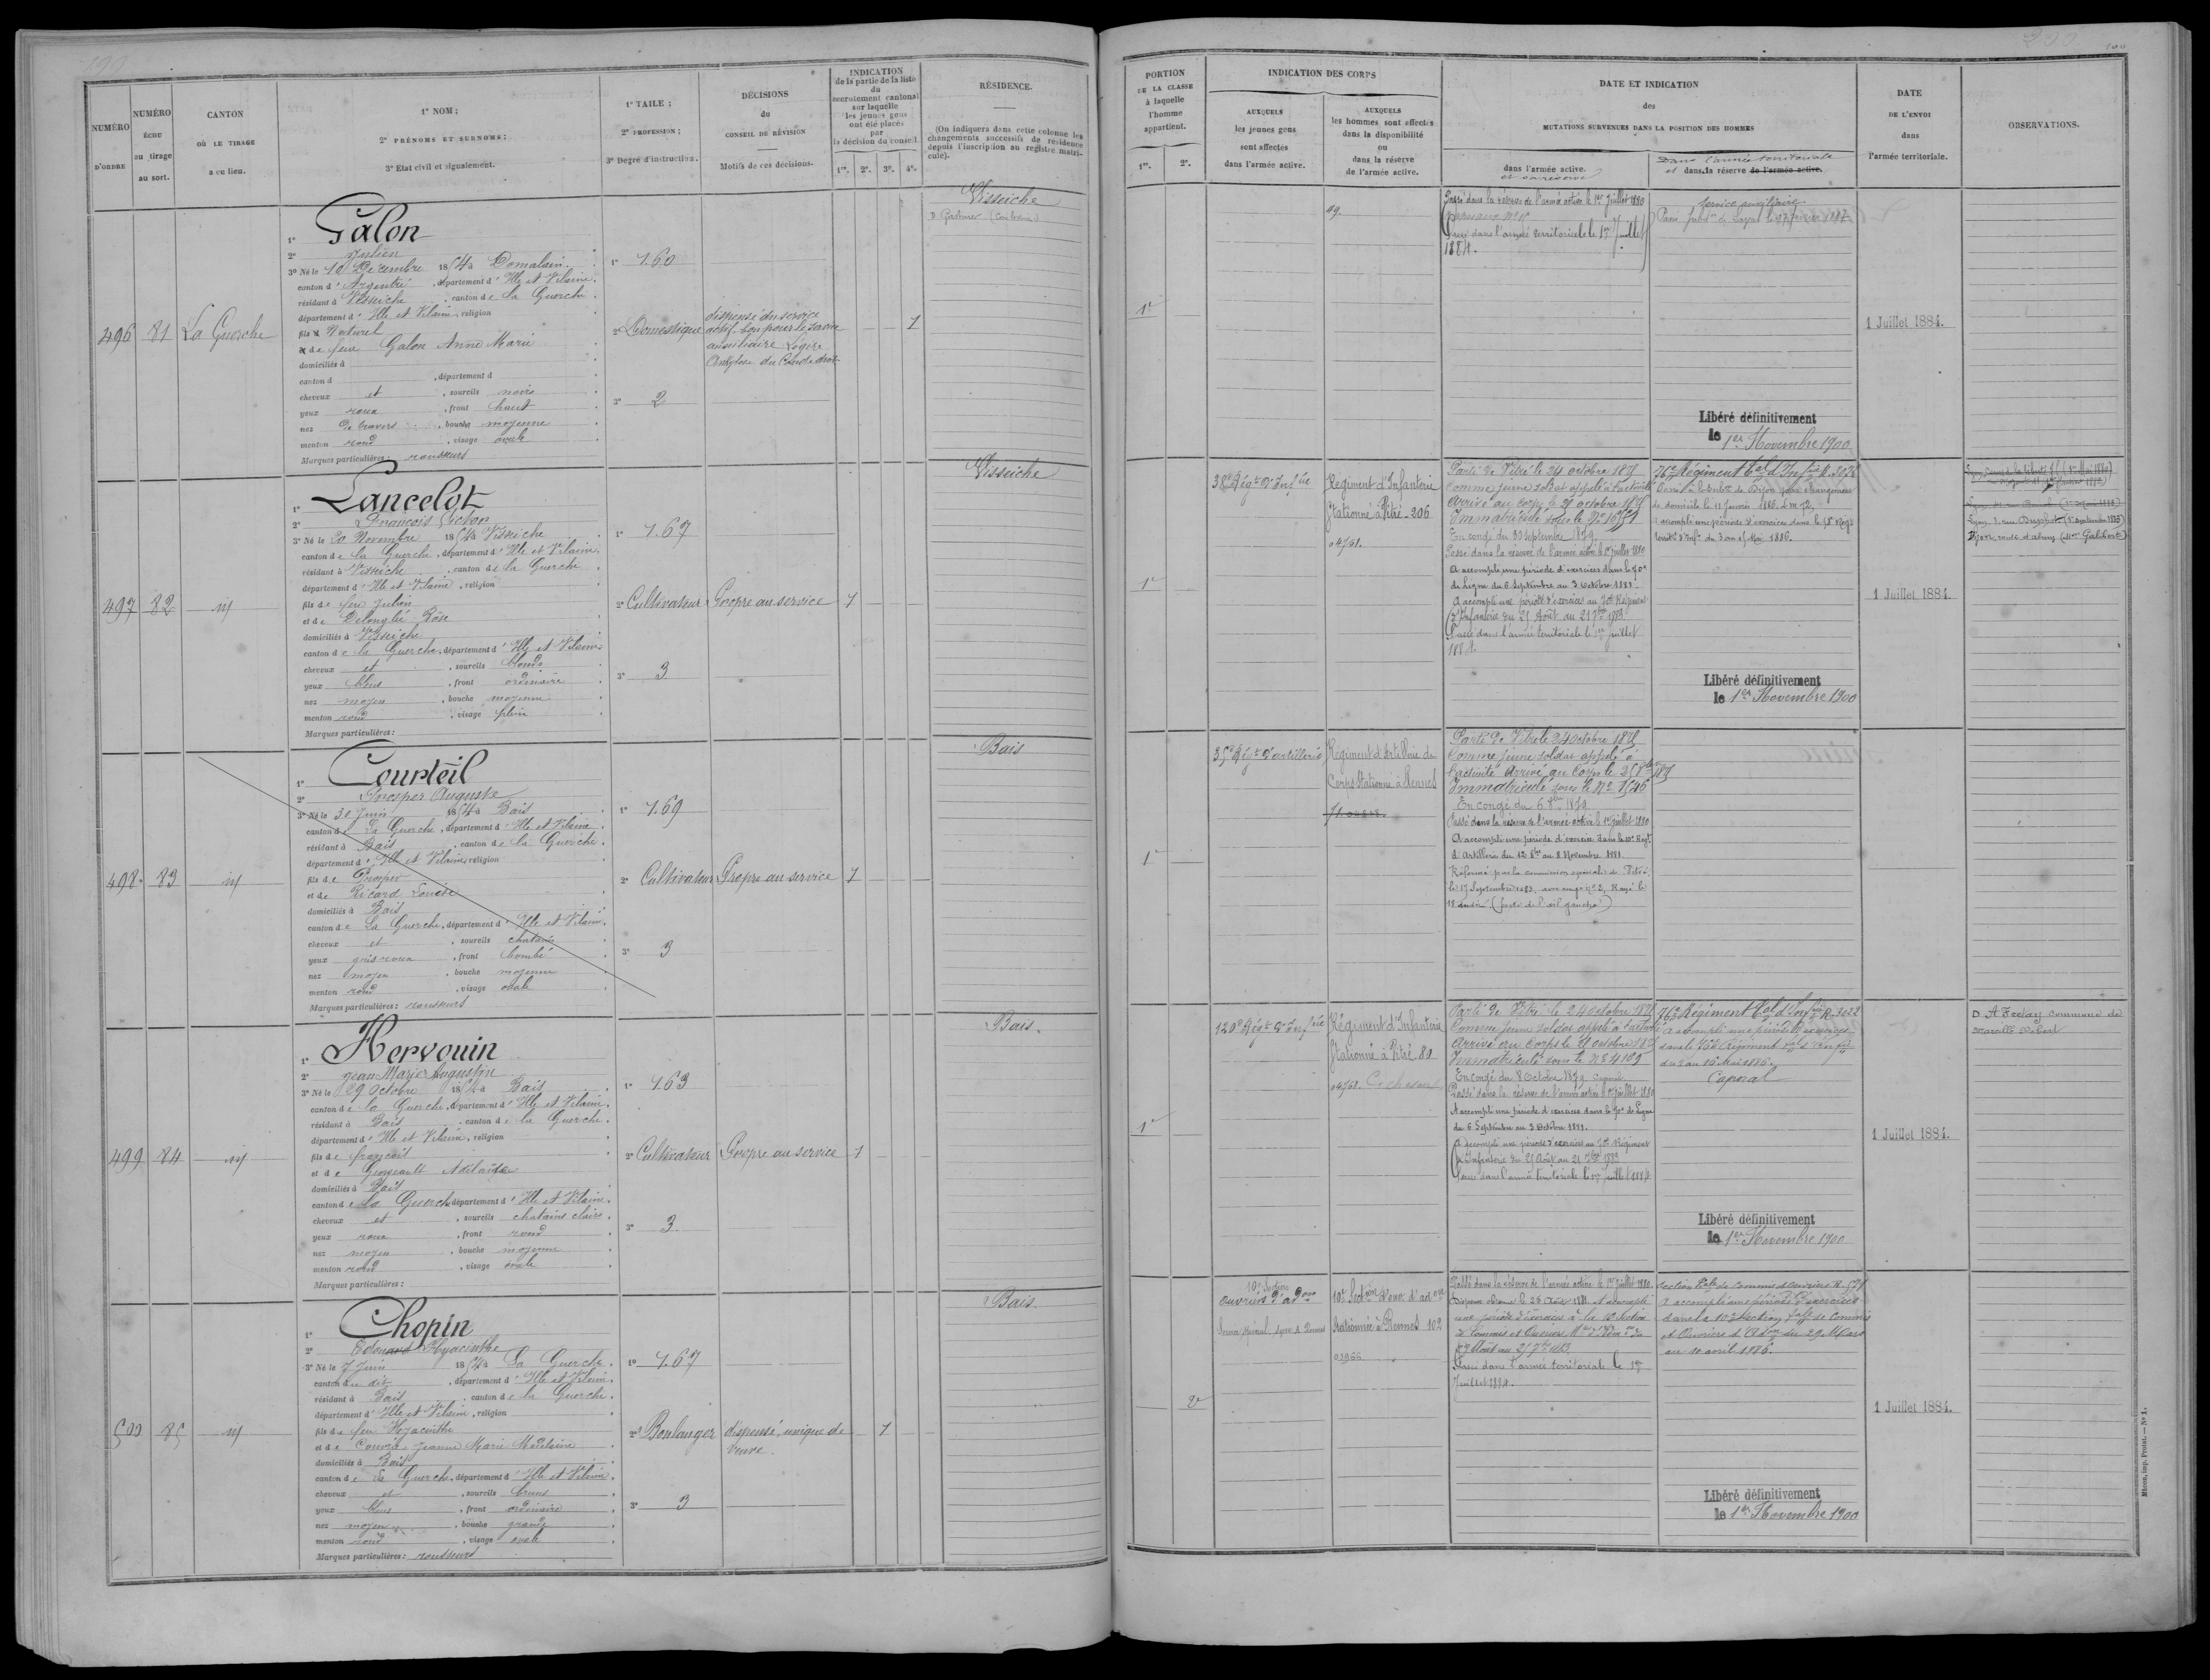 200
100
NUMÉRO
D'ORDRE
NUMÉRO
ÉCHU
au tirage
au sort.
CANTON
OÙ LE TIRAGE
a eu lieu.
1° NOM ;
2° PRÉNOMS ET SURNOMS ;
3° État civil et signalement.
1° TAILE ;
2° PROFESSION ;
3° Degré d'instruction.
DÉCISIONS
du
CONSEIL DE RÉVISION
Motifs de ces décisions.
INDICATION
de la partie de la liste
du
recrutement cantonal
sur laquelle
les jeunes gens
ont été placés
par
la décision du conseil
1re. 2e. 3e. 4e.
RÉSIDENCE.
(On indiquera dans cette colonne les
changements successifs de résidence
depuis l'inscription au registre matri-
cule).
PORTION
DE LA CLASSE
à laquelle
l'homme
appartient.
1re. 2e.
INDICATION DES CORPS
AUXQUELS
les jeunes gens
sont affectés
dans l'armée active.
AUXQUELS
les hommes sont affectés
dans la disponibilité
ou
dans la réserve
de l'armée active.
DATE ET INDICATION
des
MUTATIONS SURVENUES DANS LA POSITION DES HOMMES
dans l'armée active.
et sa réserve
Dans l'armée territoriale
et dans la réserve de l'armée active.
DATE
DE L'ENVOI
dans
l'armée territoriale.
OBSERVATIONS.
496 81 La Guerche
1° Galon
2° Julien
3° Né le 10 Décembre 1854 à Domalain
canton d'Argentré, département d'Ille et Vilaine
résidant à Visseiche, canton de la Guerche
département d'Ille et Vilaine, religion
fils Naturel
de feue Galon Anne Marie
domiciliés à
canton d , département d
cheveux et , sourcils noirs
yeux roux , front haut
nez De travers , bouche moyenne
menton rond , visage ovale
Marques particulières : rousseurs
1° 1.60
2° Domestique
3° 2
dispensé du service
actif, bon pour le service
auxiliaire Légère
Ankylose du Coude droit
1
Visseiche
1e
49.
Passé dans la réserve de l'armée active le 1er Juillet 1880
Passé dans l'armée territoriale le 1er Juillet
1884.
Service auxiliaire
Libéré définitivement
le 1er Novembre 1900
1 Juillet 1884.
497 82 id
1° Lancelot
2° François Victor
3° Né le 20 Novembre 1854 à Visseiche
canton de la Guerche, département d'Ille et Vilaine
résidant à Visseiche, canton de la Guerche
département d'Ille et Vilaine, religion
fils de feu Julien
et de Delonglée Rose
domiciliés à Visseiche
canton de la Guerche, département d'Ille et Vilaine
cheveux et , sourcils blonds
yeux bleus , front ordinaire
nez moyen , bouche moyenne
menton rond , visage plein
Marques particulières :
1° 1.67
2° Cultivateur
3° 3
Propre au service
1
Visseiche
1e
38e Régt d'Infie
Régiment d'Infanterie
Stationné à Vitré - 206
04751.
Parti de Vitré le 24 octobre 1875
Comme jeune soldat appelé à l'activité
Arrivé au corps le 27 octobre 1875
Immatriculé sous le No 10751
En congé du 30 septembre 1879.
Passé dans la réserve de l'armée active le 1er juillet 1880
A accompli une période d'exercices dans le 70e
de Ligne du 6 Septembre au 3 Octobre 1881
A accompli une période d'exercices au 70e Régiment
d'Infanterie du 25 Août au 21 7bre 1883.
Passé dans l'armée territoriale le 1er juillet
1884.
76e Régiment Tal d'Infrie R. 3026
de domicile le 11 Janvier 1886.
a accompli une période d'exercices dans le 58e Régt
territl d'Infie du 3 au 15 Mai 1886.
Libéré définitivement
le 1er Novembre 1900
1 Juillet 1884.
498. 83 id
1° Courteil
2° Prosper Auguste
3° Né le 30 Juin 1854 à Bais
canton de La Guerche, département d'Ille et Vilaine
résidant à Bais, canton de la Guerche
département d'Ille et Vilaine, religion
fils de Prosper
et de Ricard Louise
domiciliés à Bais
canton de La Guerche, département d'Ille et Vilaine
cheveux et , sourcils chatains
yeux gris roux , front bombé
nez moyen , bouche moyenne
menton rond , visage ovale
Marques particulières : rousseurs
1° 1.69
2° Cultivateur
3° 3
Propre au service
1
Bais
1e
35e Régt d'artillerie
Régiment d'Artillerie de
Corps Stationné à Rennes
Parti de Vitré le 24 Octobre 1875
Comme jeune soldat appelé à
l'activité Arrivé au Corps le 25 8bre 1875
Immatriculé sous le No 1546
En congé du 6 1879
Passé dans la réserve de l'armée active le 1er juillet 1880
A accompli une période d'exercice dans le 10e Régt
d'Artillerie du 12 8bre au 8 Novembre 1881
Réformé par la commission spéciale de Vitré
le 17 Septembre 1883. avec congé no 2, Rayé le
18 dudit (perte de l'œil gauche)
499 84 id
1° Hervouin
2° Jean Marie Augustin
3° Né le 29 Octobre 1854 à Bais
canton de la Guerche, département d'Ille et Vilaine
résidant à Bais, canton de la Guerche
département d'Ille et Vilaine, religion
fils de français
et de Georgeault Adélaïde
domiciliés à Bais
canton de La Guerche département d'Ille et Vilaine
cheveux et , sourcils chatains clairs
yeux roux , front rond
nez moyen , bouche moyenne
menton rond , visage ovale
Marques particulières :
1° 1.63
2° Cultivateur
3° 3
Propre au service
1
Bais.
1e
120e Régt d'Infrie
Régiment d'Infanterie
Stationné à Vitré 80
04751.
Parti de Vitré le 24 octobre 1875
Comme jeune soldat appelé à l'activité
Arrivé au Corps le 27 octobre 1875
Immatriculé sous le No 4109
En congé du 8 Octobre 1879 Caporal
Passé dans la réserve de l'armée active le 1er juillet 1880
A accompli une période d'exercices dans le 70e de Ligne
du 6 Septembre au 3 Octobre 1881.
A accompli une période d'exercices au 70e Régiment
d'Infanterie du 25 Août au 21 7bre 1883
Passé dans l'armée territoriale le 1er Juillet 1884
76e Régiment Tal d'Infrie R. 3022
A accompli une période d'exercices
dans le 76e Régiment Tal d'Infie
du 3 au 15 Mai 1886.
Caporal
Libéré définitivement
le 1er Novembre 1900
1 Juillet 1884.
D. A commune de
Marcillé Robert
500 85 id
1° Chopin
2° Edouard Hyacinthe
3° Né le 7 Juin 1854 à La Guerche
canton du dit , département d'Ille et Vilaine
résidant à Bais, canton de la Guerche
département d'Ille et Vilaine, religion
fils de feu Hyacinthe
et de Jeanne Marie Madelaine
domiciliés à Bais
canton de La Guerche, département d'Ille et Vilaine
cheveux et , sourcils bruns
yeux bleus , front ordinaire
nez moyen , bouche grande
menton rond , visage ovale
Marques particulières : rousseurs
1° 1.67
2° Boulanger
3° 3
dispensé, unique de
veuve.
1
Bais.
2e
10e Section
ouvriers d'adon
10e Section d'ouv. d'adon
Stationnée à Rennes 102
03966
Passé dans la réserve de l'armée active le 1er juillet 1880.
une période d'exercices à la 10e Section
de Commis et Ouvriers
Août au 21 7bre 1883
Passé dans l'armée territoriale le 1er
Juillet 1884.
Section Tale de Commis et Ouvriers R. 571
A accompli une période d'exercices
dans la 10e Section Tale de Commis
et Ouvriers d'Adon du 29 Mars
au 10 avril 1886.
Libéré définitivement
le 1er Novembre 1900
1 Juillet 1884.
Mâcon, imp. Protat. — N° 1.